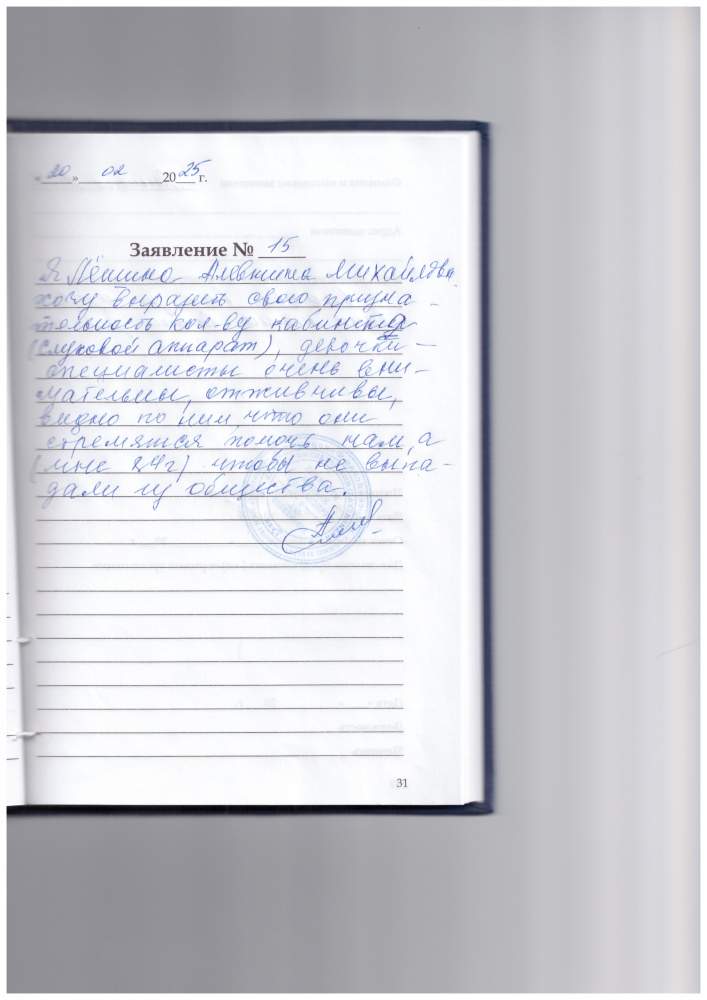 «20» 02 2025 г.
Заявление № 15
Я Лёшина Алевтина Михайловна
хочу выразить свою призна-
тельность кол-ву кабинета
(слуховой аппарат), девочки -
специалисты очень вни-
мательны, отживчивы,
видно по ним, что они
стремятся помочь нам, а
(мне 84г) чтобы не выпа-
дали из общества.
31